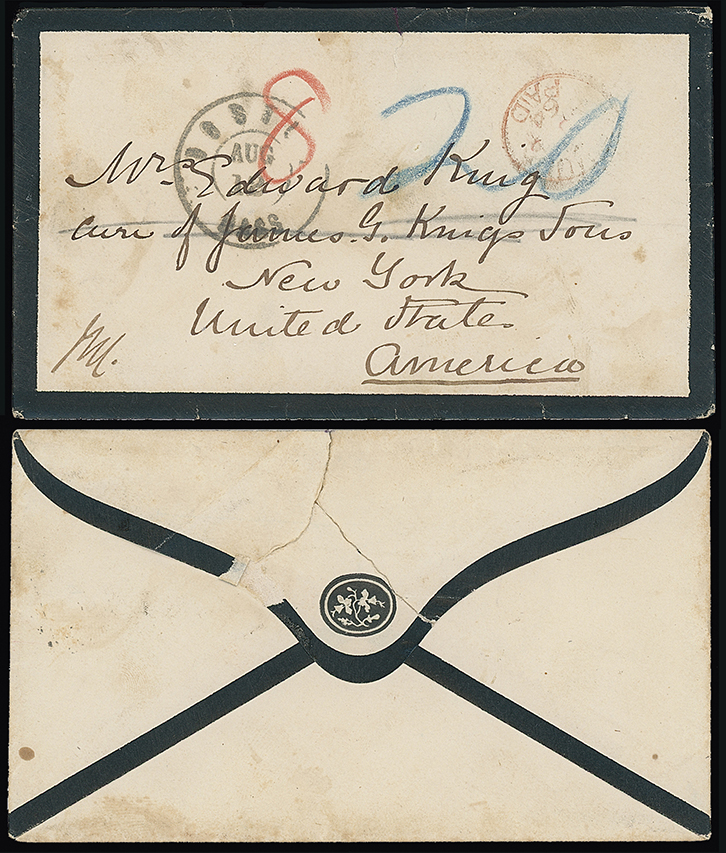 8
20
BOSTON
AUG
MASS
PAID
Mrs Edward King
care of James. G. Kings Sons
New York
United States
America